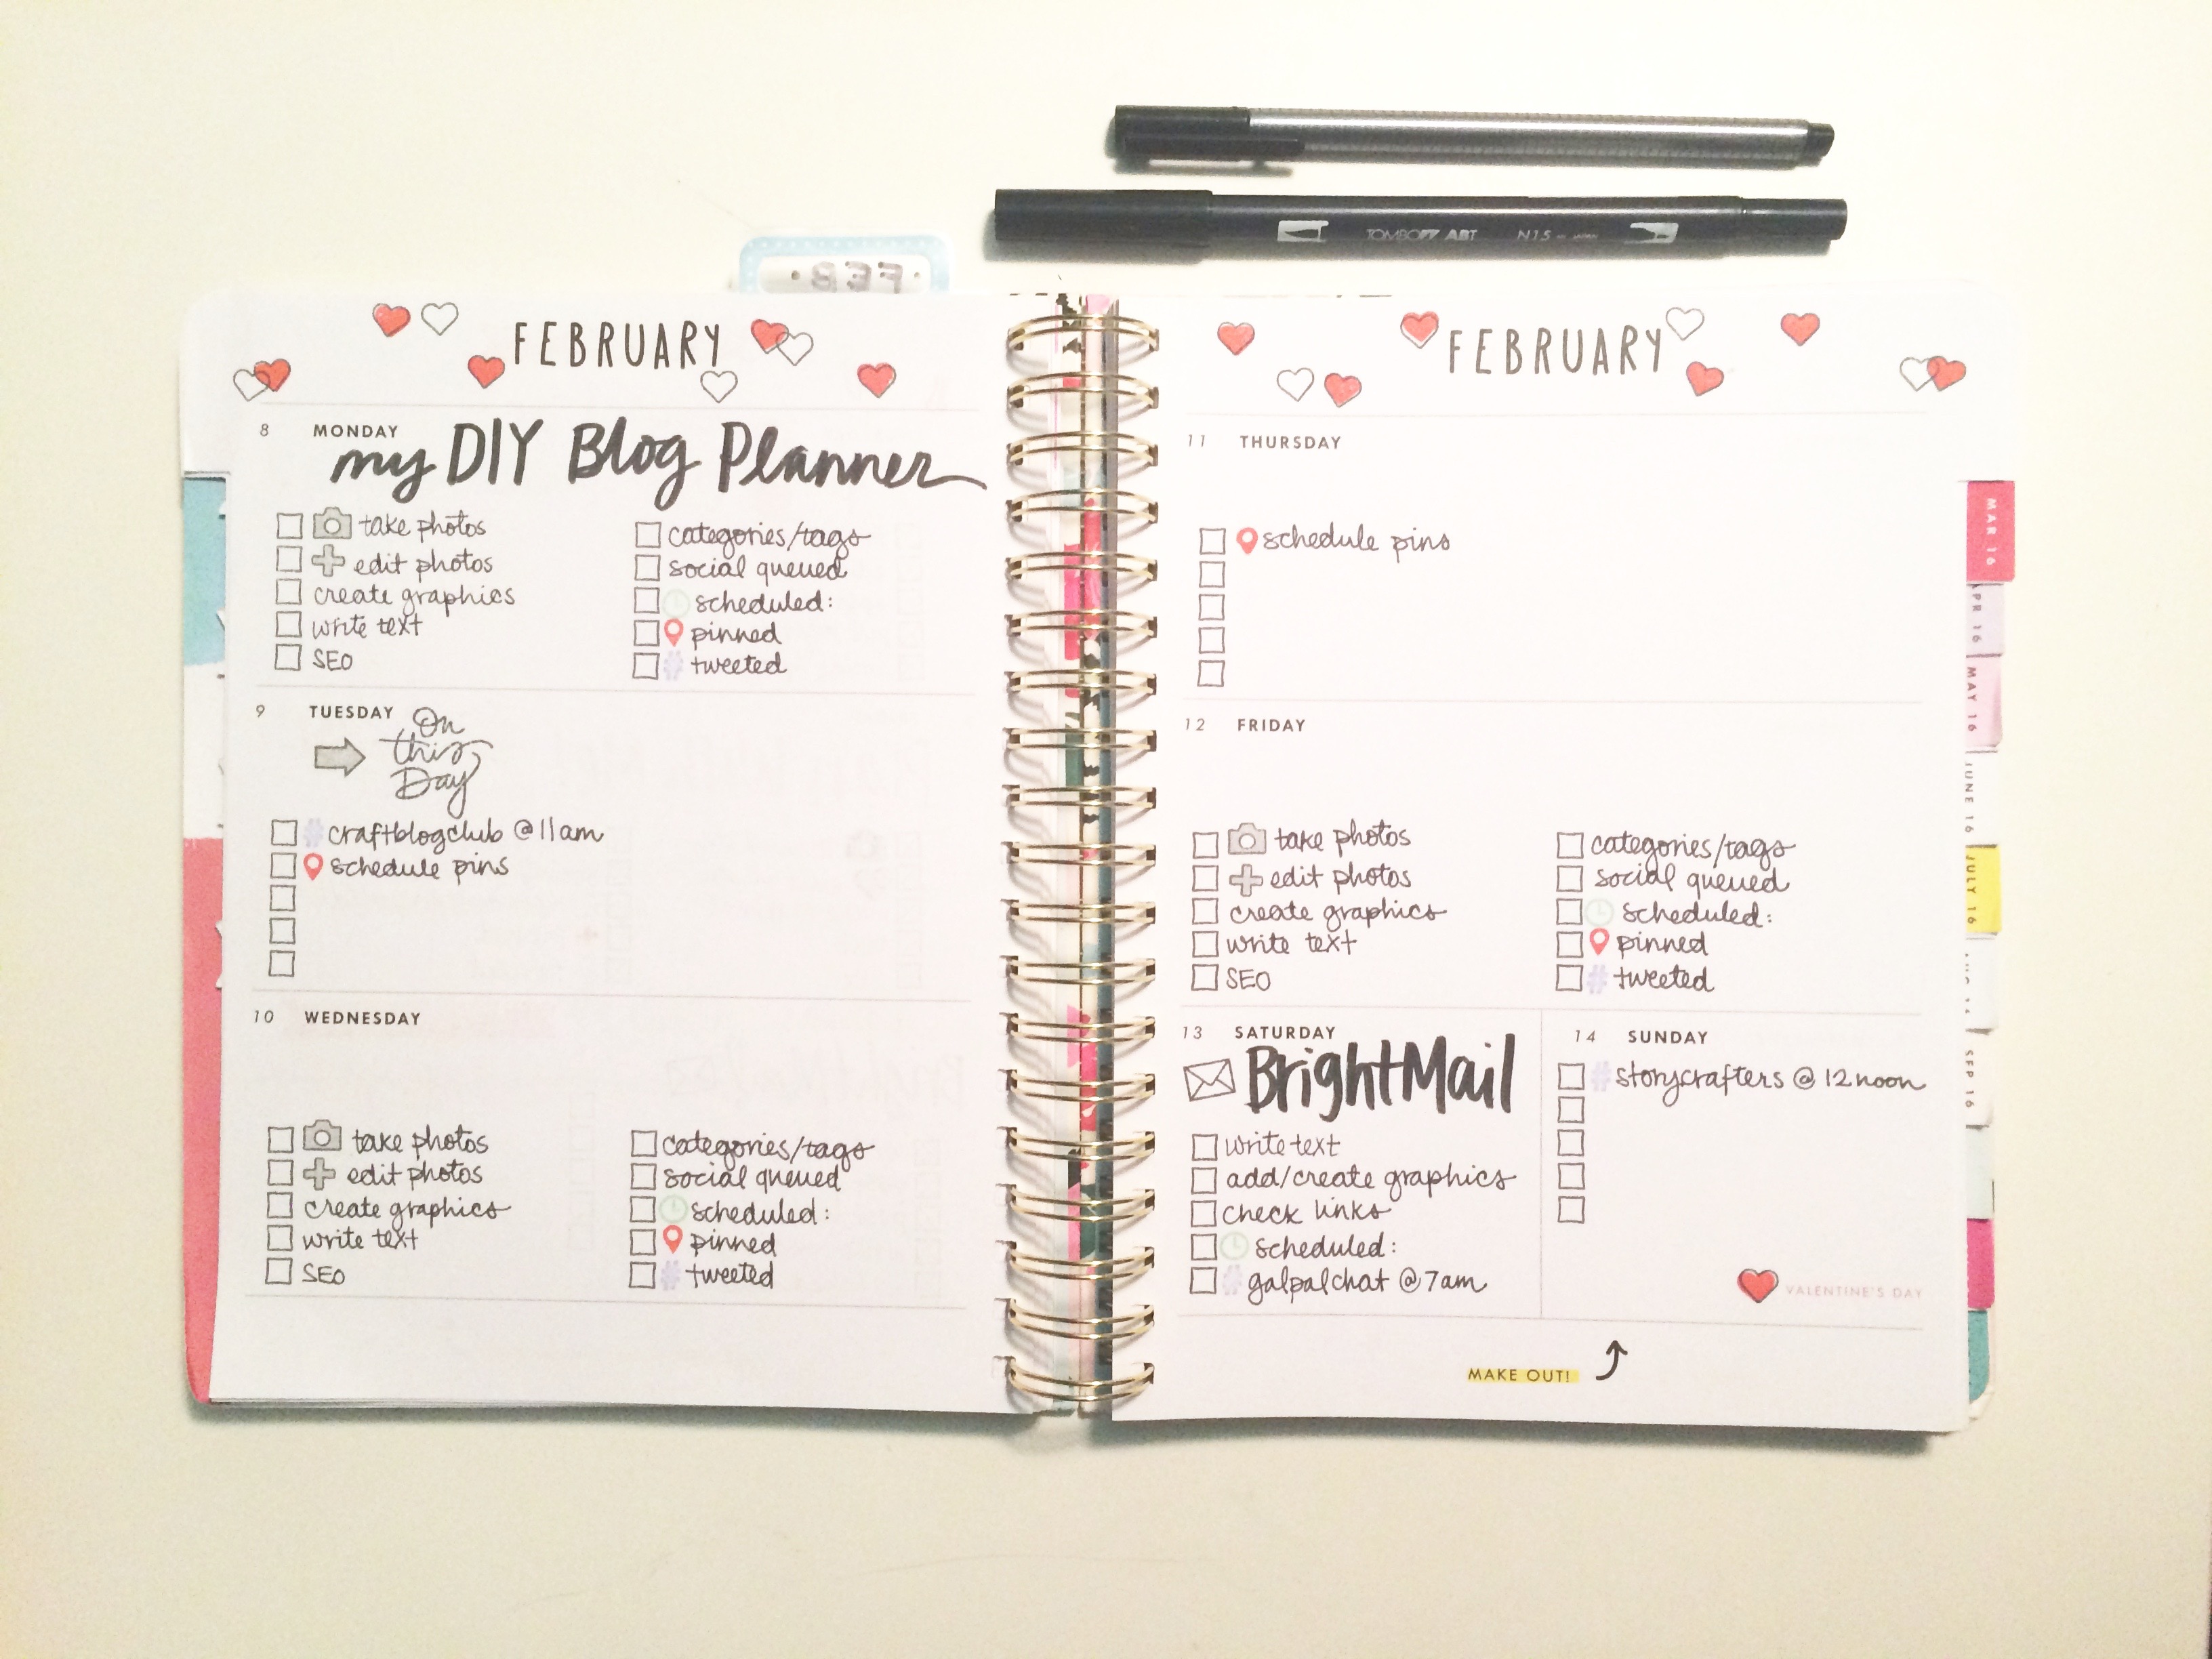 TOMBOW ABT N15
FEB
FEBRUARY
8 MONDAY
my DIY Blog Planner
take photos
edit photos
create graphics
write text
SEO
categories/tags
social queued
scheduled:
pinned
# tweeted
9 TUESDAY
On
this
Day
# craftblogclub @ 11am
schedule pins
10 WEDNESDAY
take photos
edit photos
create graphics
write text
SEO
categories/tags
social queued
scheduled:
pinned
# tweeted
FEBRUARY
11 THURSDAY
schedule pins
12 FRIDAY
take photos
edit photos
create graphics
write text
SEO
categories/tags
social queued
scheduled:
pinned
# tweeted
13 SATURDAY
BrightMail
write text
add/create graphics
check links
scheduled:
# galpalchat @ 7am
14 SUNDAY
# storycrafters @ 12 noon
VALENTINE'S DAY
MAKE OUT!
MAR 16
APR 16
MAY 16
JUNE 16
JULY 16
SEP 16